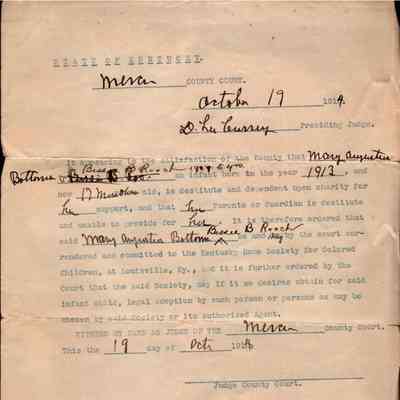 STATE OF KENTUCKY.
Mercer COUNTY COURT.
October 19 1914.
D. Lee Currey Presiding Judge.
It appearing to the satisfaction of the County that Mary Augustine
Bottome Bessie B Roach an infant born in the year 1913, and
now 17 Months old, is destitute and dependent upon charity for
her support, and that her Parents or Guardian is destitute
and unable to provide for her. It is therefore ordered that
said Mary Augustine Bottome Bessie B Roach be and is by the court sur-
rendered and committed to the Kentucky Home Society for Colored
Children, at Louisville, Ky., and it is further ordered by the
Court that the said Society, may if it so desires obtain for said
infant child, legal adoption by such person or persons as may be
chosen by said Society or its authorized Agent.
WITNESS MY HAND AS JUDGE OF THE Mercer County Court.
This the 19 day of Oct 1914
Judge County Court.